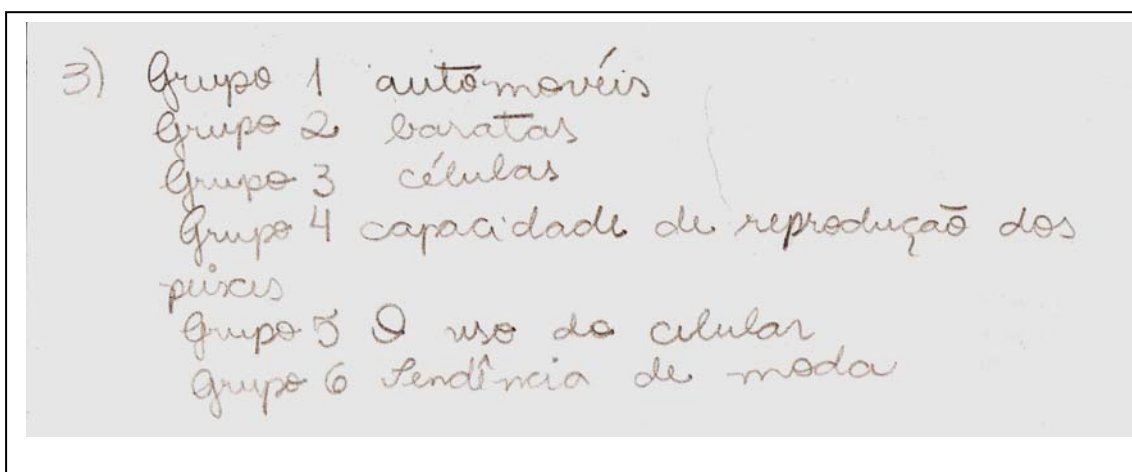 3) Grupo 1 automovéis
Grupo 2 baratas
Grupo 3 células
Grupo 4 capacidade de reprodução dos
peixes
Grupo 5 O uso do celular
Grupo 6 Tendência de moda